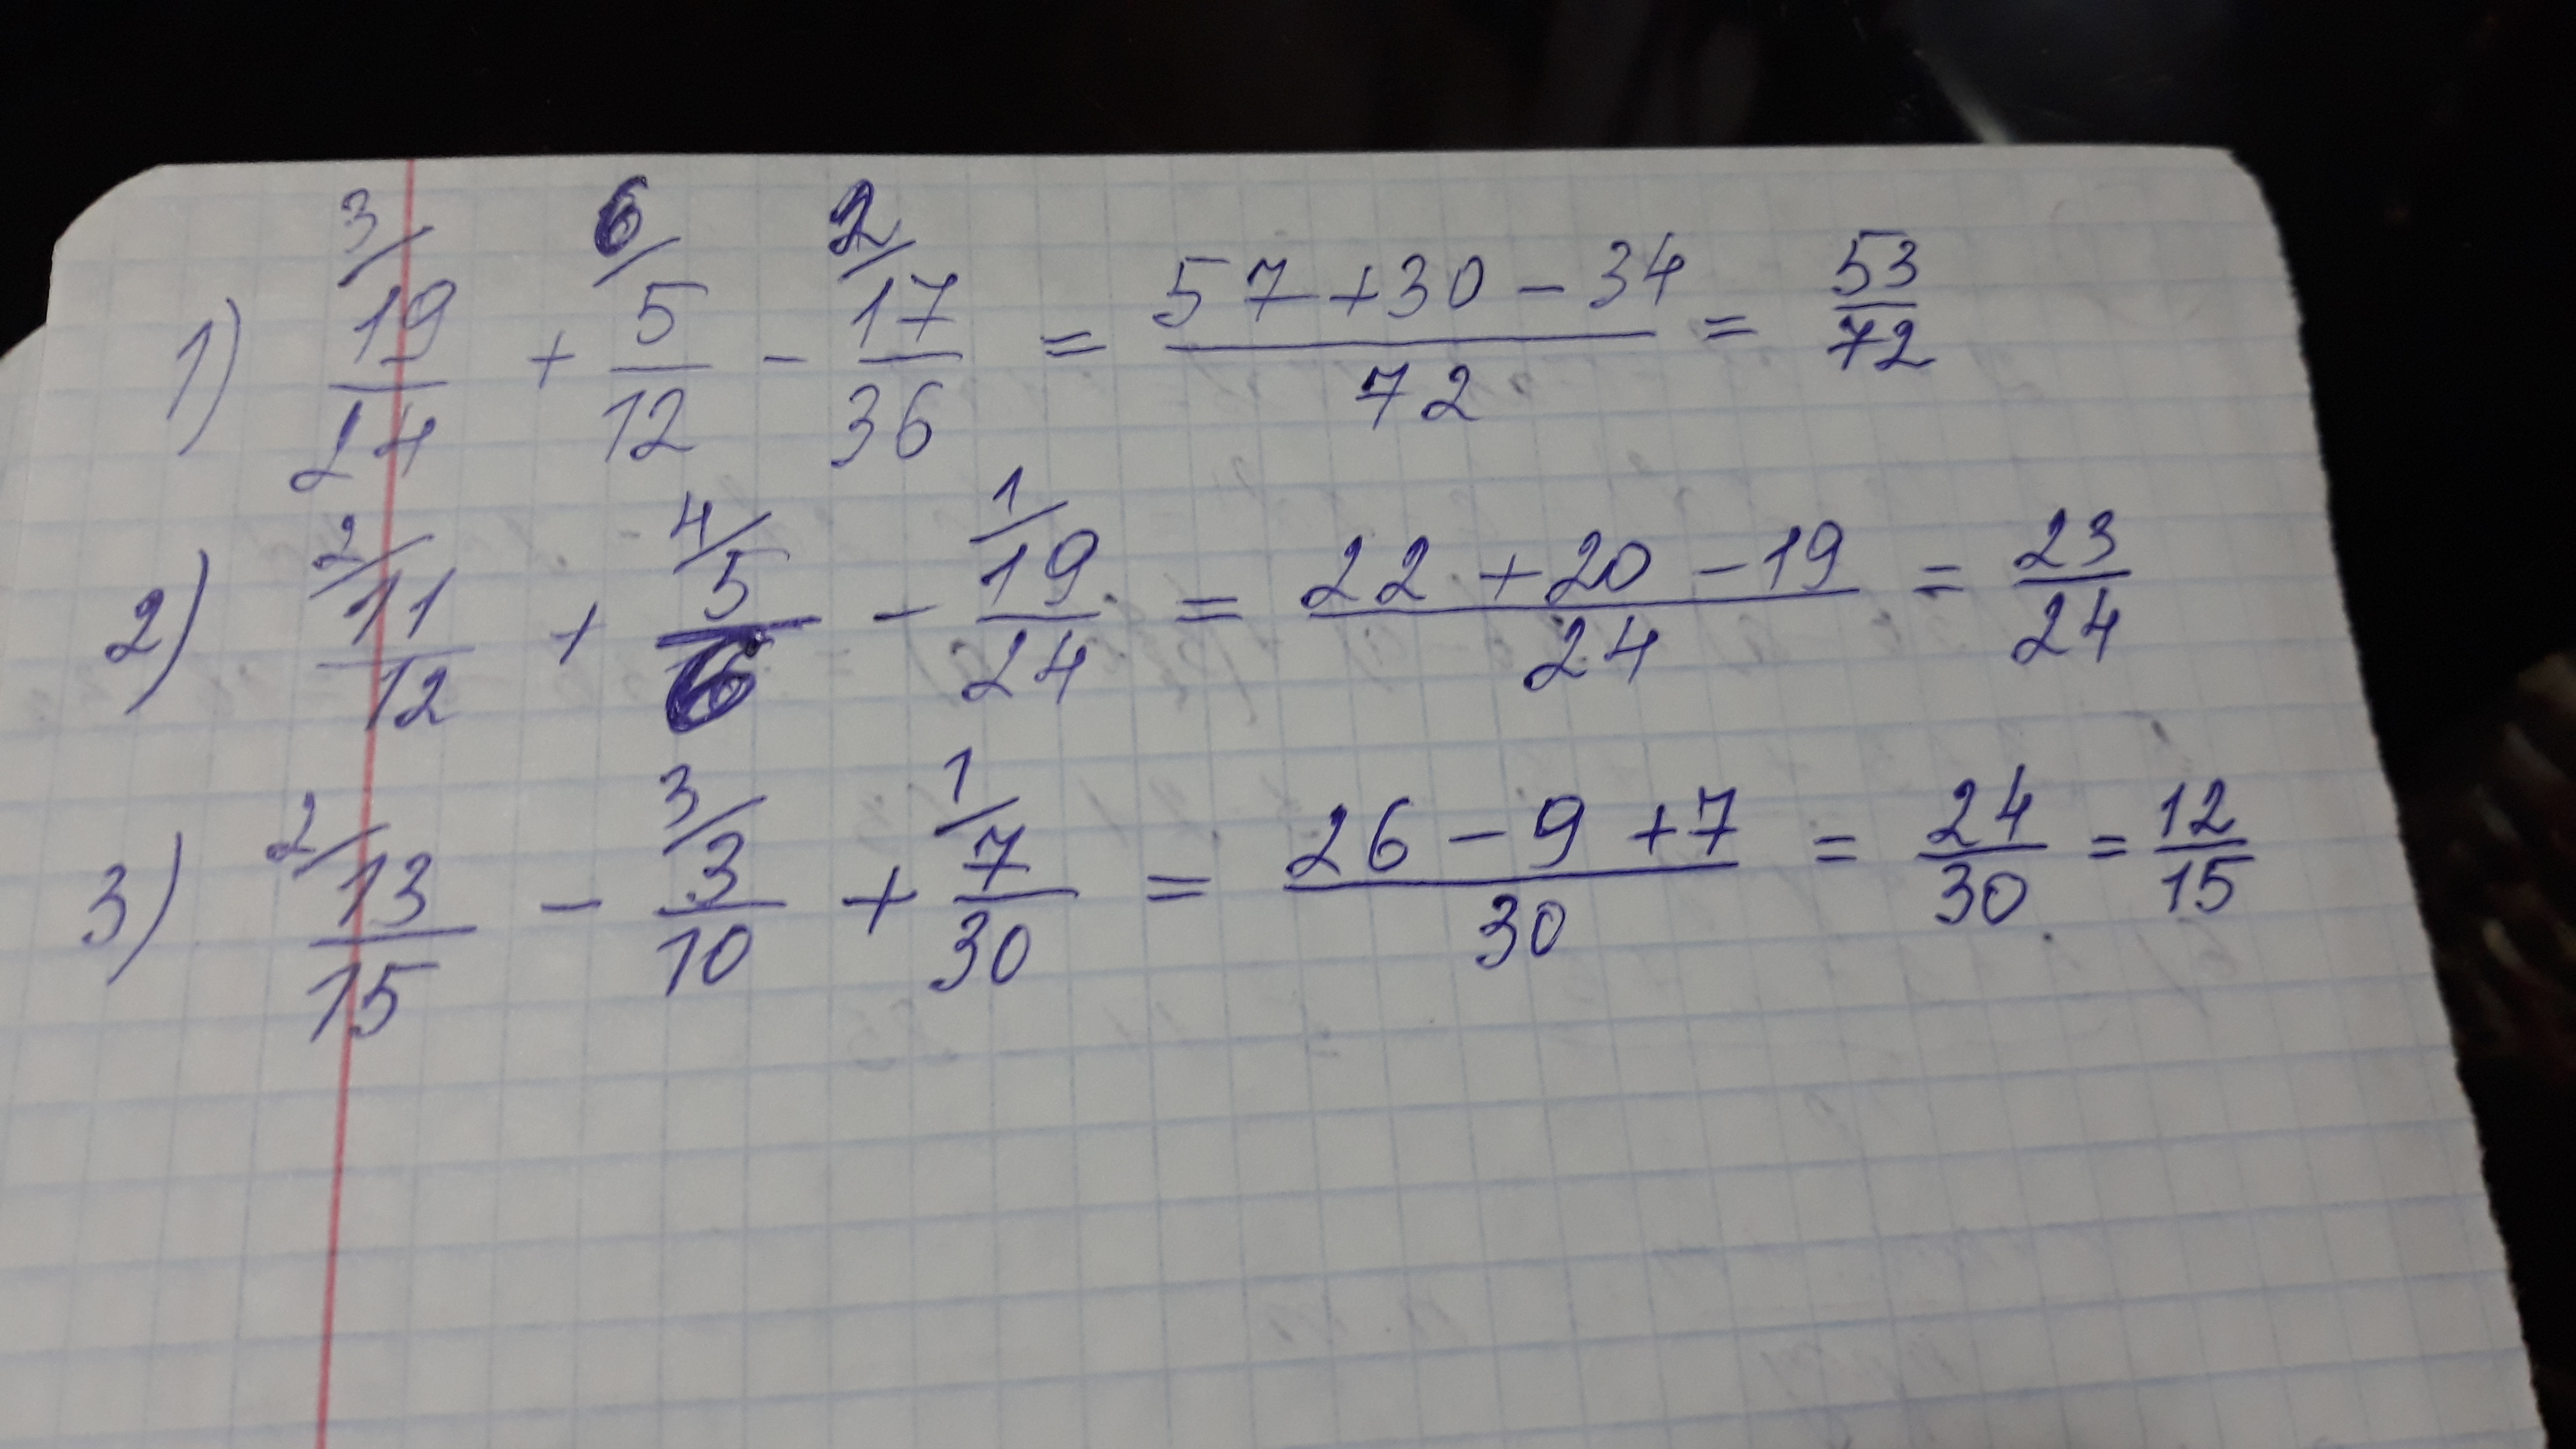 1) 3/ 19/24 + 6/ 5/12 - 2/ 17/36 = 57+30-34/72 = 53/72
2) 2/ 11/12 + 4/ 5/6 - 1/ 19/24 = 22+20-19/24 = 23/24
3) 2/ 13/15 - 3/ 3/10 + 1/ 7/30 = 26-9+7/30 = 24/30 = 12/15